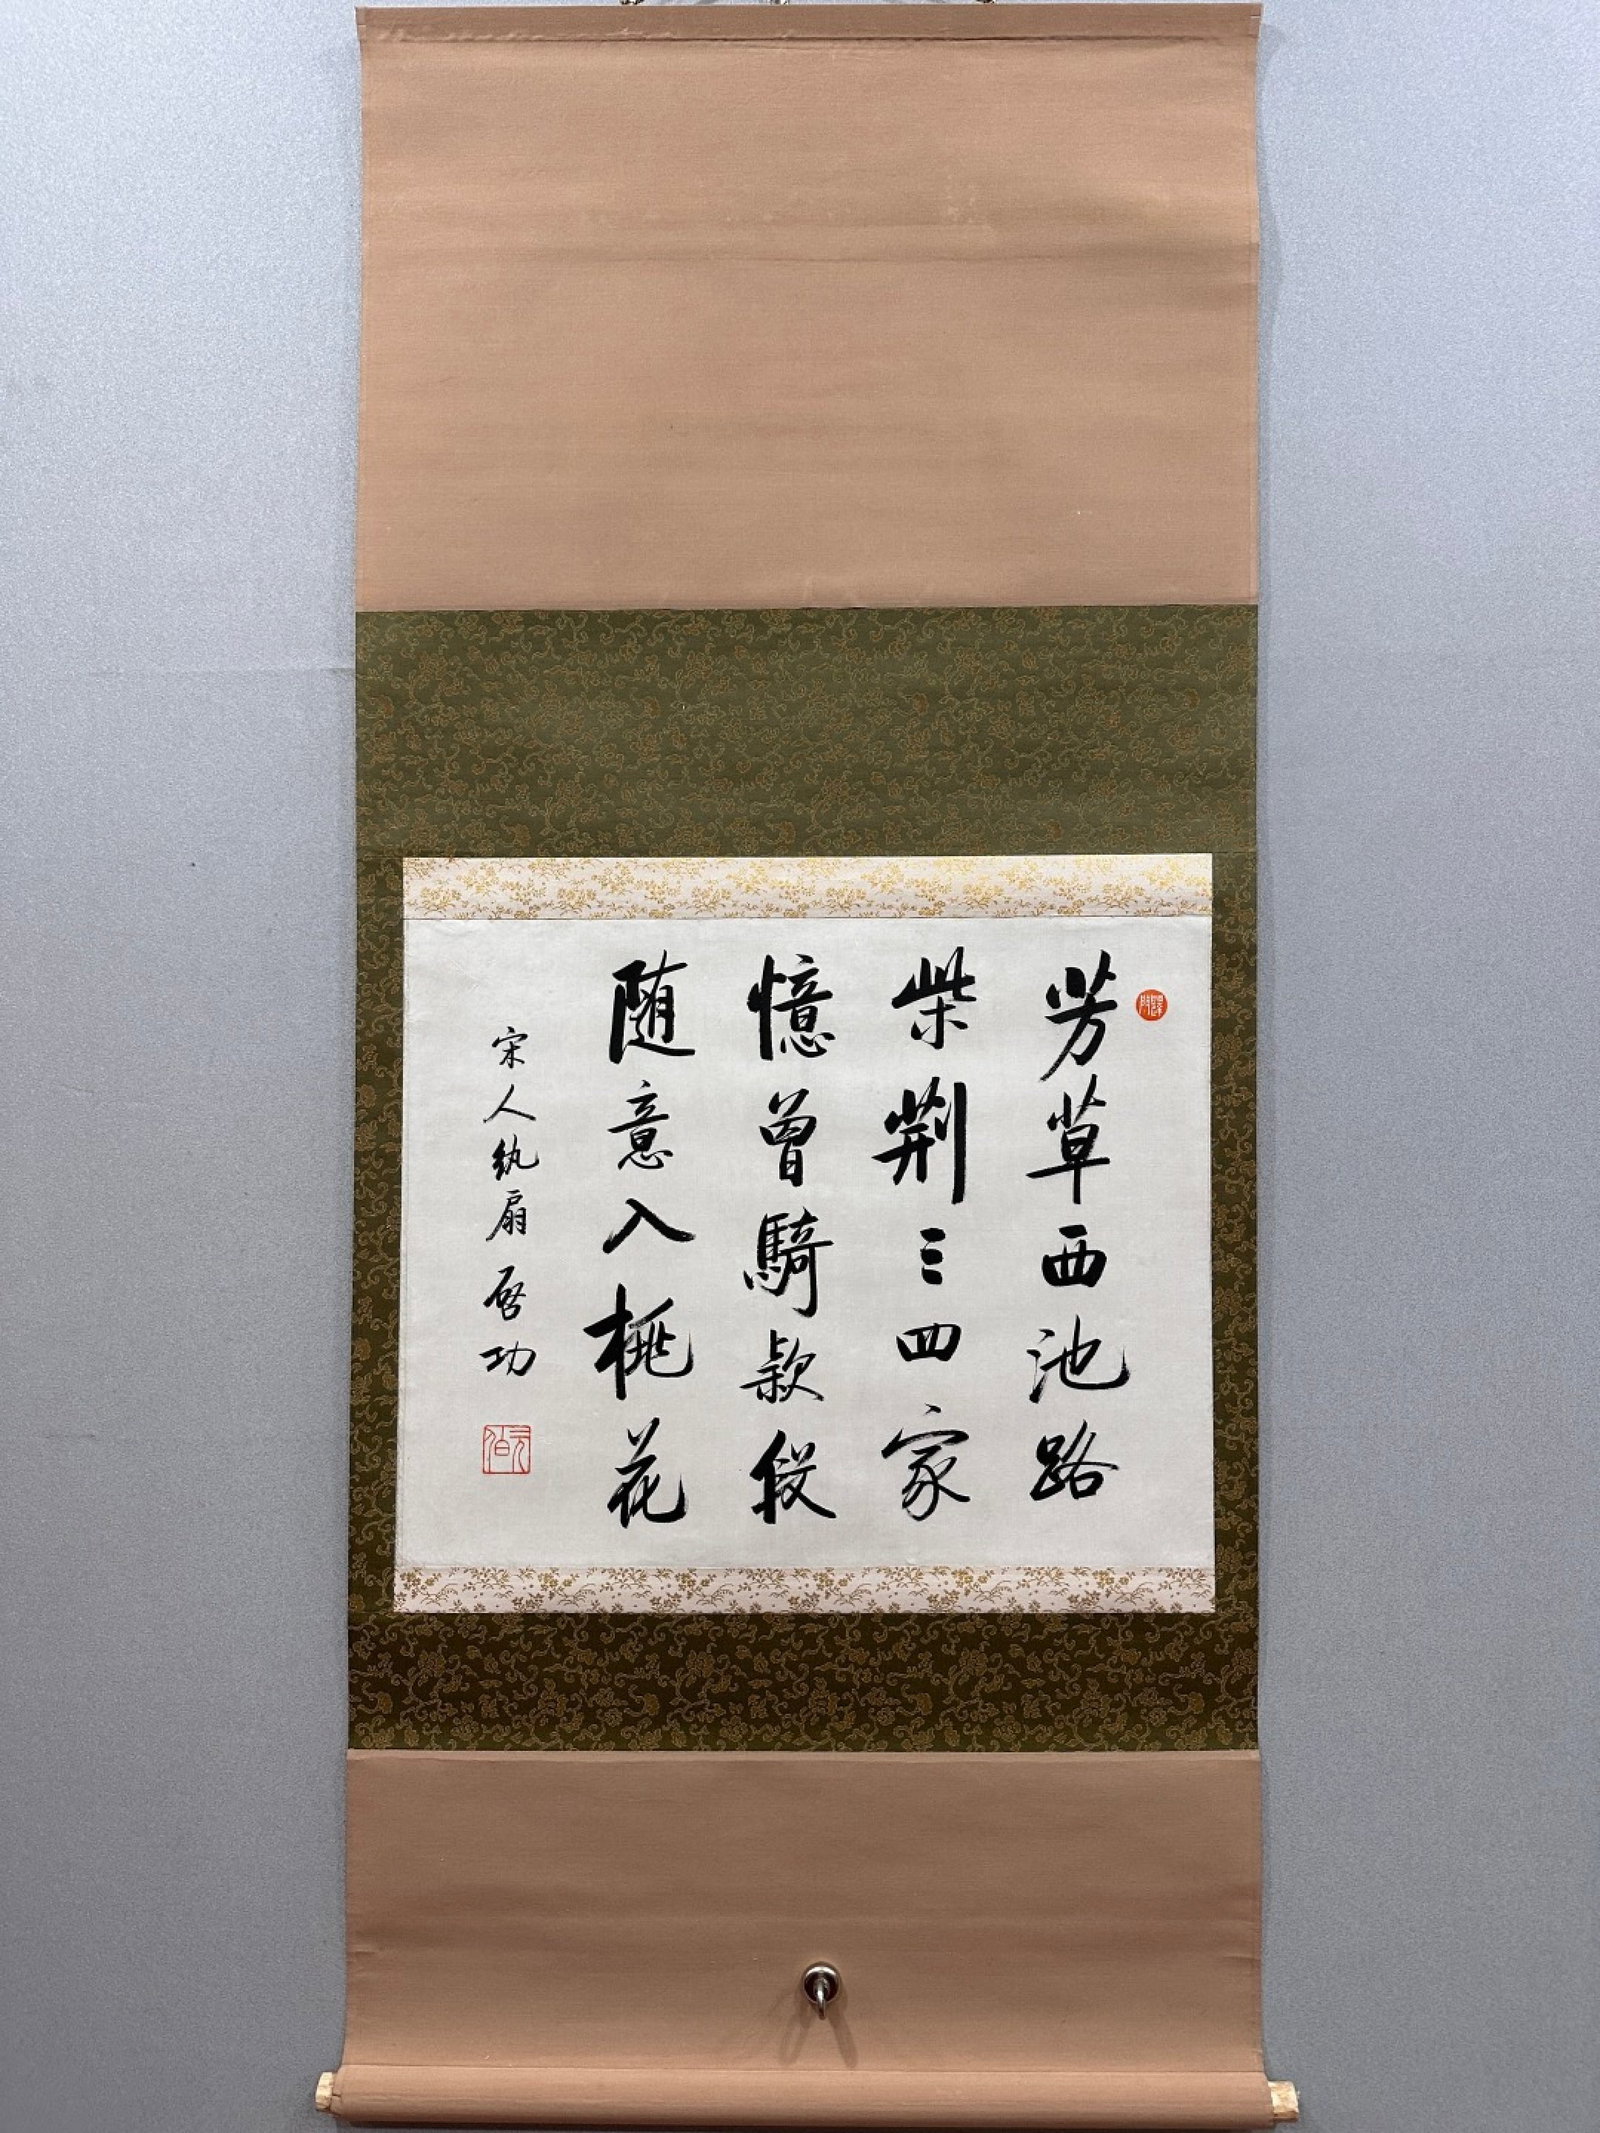 芳草西池路
柴荆三四家
憶曾騎款段
随意入桃花
宋人紈扇 启功
元伯